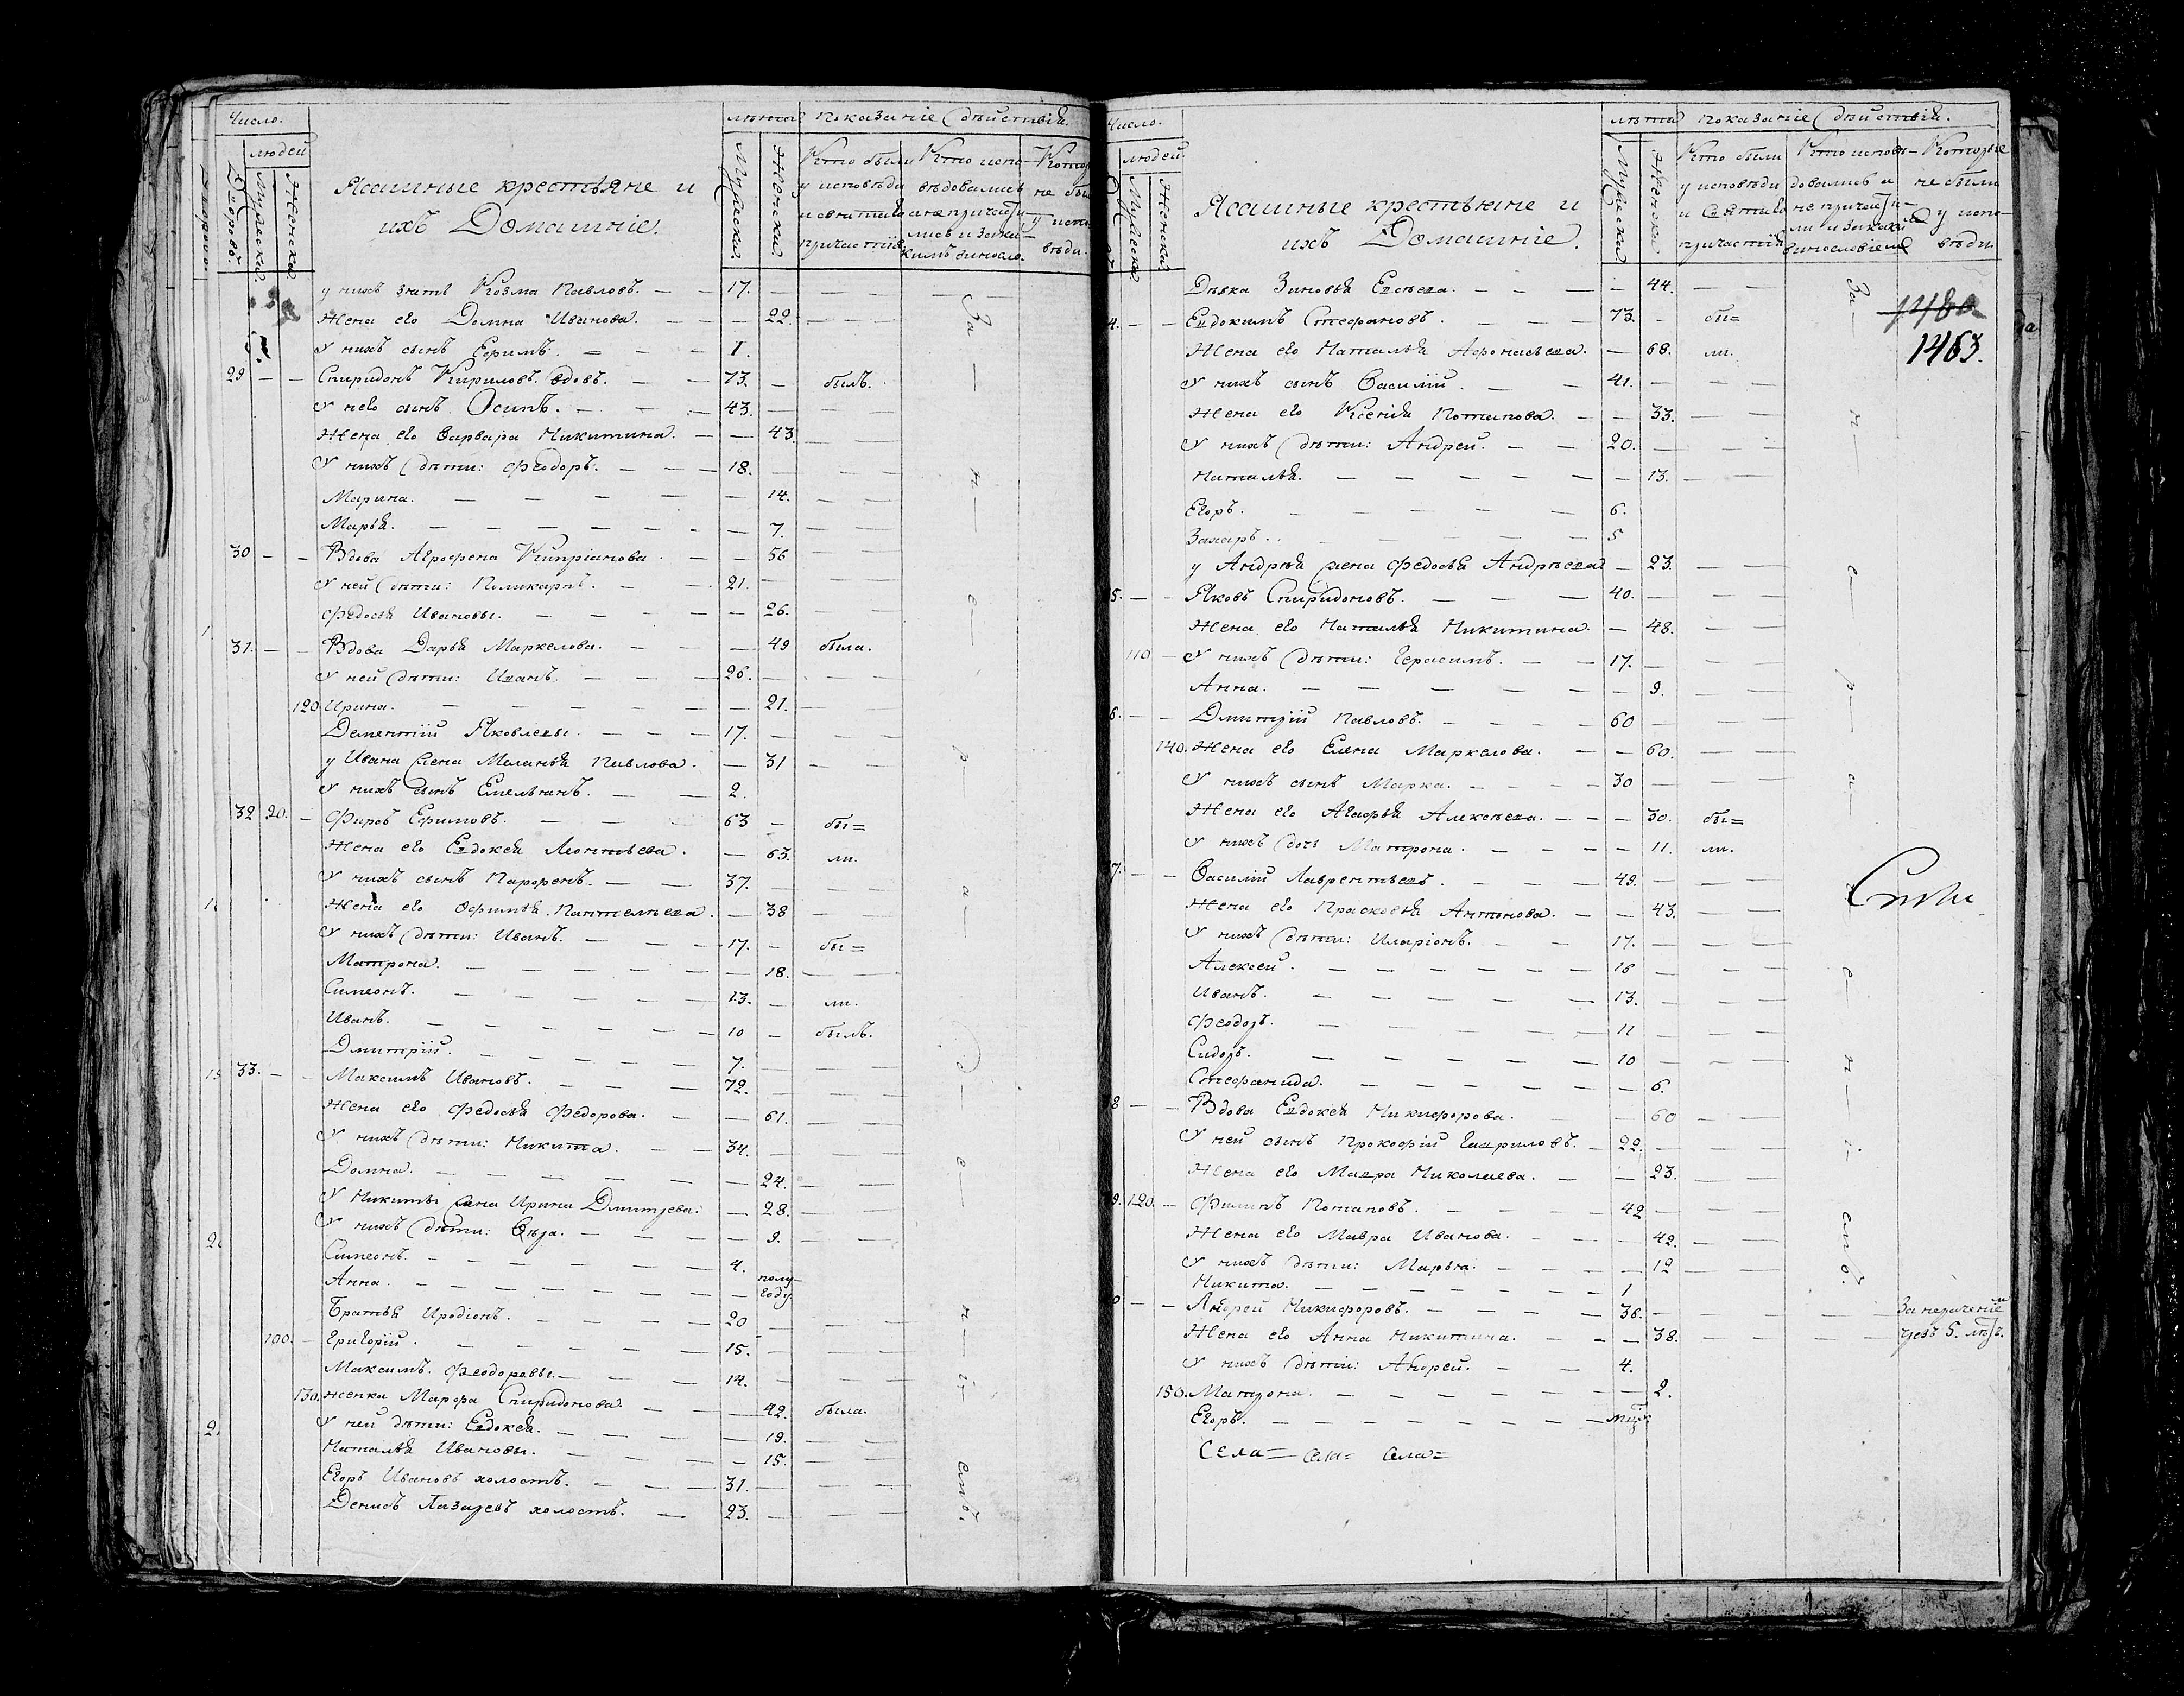 Число.
людей
Дворовъ. Мужеска Женска
Ясашные крестьяне и
ихъ Домашніе.
лѣта Показаніе действій.
Мужеска Женска
Кто были у исповѣди и святаго причастія
Кто испо- вѣдовались
не бы у испо вѣди.
у нихъ зять Козма Павловъ. 17.
Жена его Домна Иванова. 22.
У нихъ сынъ Ефимъ. 1.
29 Спиридонъ Кириловъ. вдовъ. 73. былъ.
У него сынъ Осипъ. 43.
Жена его Варвара Никитина. 43.
У нихъ дѣти: Феодоръ. 18.
Марина. 14.
Марья. 7.
30 Вдова Агрофена Кипріанова. 56
У ней дѣти: Поликарпъ. 21.
Федосья Ивановы. 26.
31. Вдова Дарья Маркелова. 49 была.
У ней дѣти: Иванъ. 26.
120. Ирина. 21.
Дементій Яковлевы. 17.
у Ивана жена Меланья Павлова. 31
У нихъ сынъ Емельянъ. 2.
32 90. Фирсъ Ефимовъ. 63 бы=
Жена его Евдокея Леонтьева. 63. ли.
У нихъ сынъ Парфенъ. 37.
Жена его Офимья Пантелѣева. 38
У нихъ дѣти: Иванъ. 17. бы=
Матрона. 18.
Симеонъ. 13. ли.
Иванъ. 10 былъ.
Дмитрій. 7.
33. Максимъ Ивановъ. 72.
Жена его Федосья Федорова. 61.
У нихъ дѣти: Никита. 34.
Домна. 24.
У Никиты жена Ирина Дмитрева. 28.
У нихъ дѣти: Вѣра. 9.
Симеонъ. 4.
Анна. полу- году.
Братья Иродіонъ. 20
100. Григорій. 15.
Максимъ. Феодоровы. 14.
130. женка Марфа Спиридонова. 42. была.
У ней дѣти: Евдокея. 19.
Наталья Ивановы. 15.
Егоръ Ивановъ холостъ. 31.
Денисъ Лазаревъ холостъ. 23.
За н е р а с н і емъ.
Число.
людей
Мужеска Женска
Ясашные крестьяне и
ихъ Домашніе.
лѣта Показаніе действій.
Мужеска Женска
Кто были у исповѣди и святаго причастія
Кто исповѣ- довались а не причасти- ли и за какимъ винословіемъ
Которые не были у испо- вѣди.
Дѣвка Зиновья Евсѣева. 44.
1480
1463.
4. Евдокимъ Стефановъ. 73. бы=
Жена его Наталья Афонасьева. 68. ли.
У нихъ сынъ Василій. 41.
Жена его Ксенія Потапова. 33.
У нихъ дѣти: Андрей. 20.
Наталья. 13.
Егоръ. 6.
Захаръ. 5
у Андрея жена Федосья Андрѣева 23.
5. Яковъ Спиридоновъ. 40.
Жена его Наталья Никитина. 48.
110 У нихъ дѣти: Герасимъ. 17.
Анна. 9.
6. Дмитрій Павловъ. 60
140. Жена его Елена Маркелова. 60.
У нихъ сынъ Марка. 30
Жена его Агафья Алексѣева. 30. бы=
У нихъ дочь Матрона. 11. ли.
7. Василій Лаврентьевъ. 49.
Жена его Прасковья Антонова. 43.
У нихъ дѣти: Иларіонъ. 17.
Алексей. 16
Иванъ. 13.
Феодоръ. 11
Сидоръ. 10
Стефанида. 6.
8 Вдова Евдокея Никифорова. 60
У ней сынъ Прокофій Гавриловъ. 22.
Жена его Мавра Николаева. 23.
9. 120. Филипъ Потаповъ. 42
Жена его Мавра Иванова. 42.
У нихъ дѣти: Марья. 12
Никита. 1
0 Андрей Никифоровъ. 36. За нераченіе
Жена его Анна Никитина. 38. чрезъ 5. лѣтъ.
У нихъ дѣти: Андрей. 4.
150. Матрона. 2.
Егоръ.
Села= села= села=